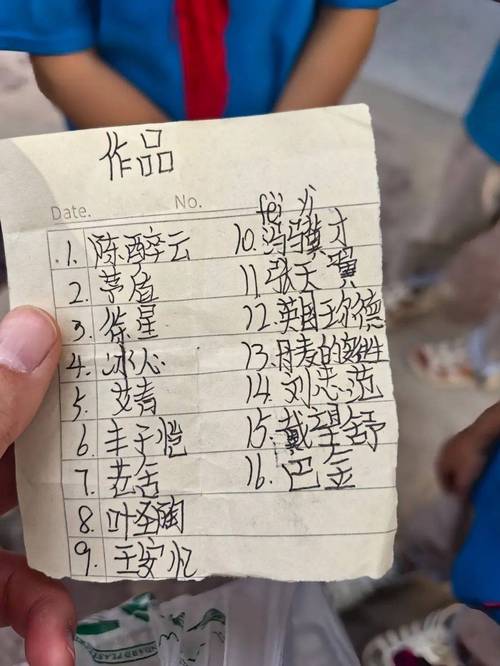 作品
Date. No.
1. 陈醉云
2. 茅盾
3. 徐星
4. 冰心
5. 艾青
6. 丰子恺
7. 老舍
8. 叶圣陶
9. 王安忆
10. 冯骥才
11. 张天翼
12. 英国王尔德
13. 丹麦的安徒生
14. 刘
15. 戴望舒
16. 巴金